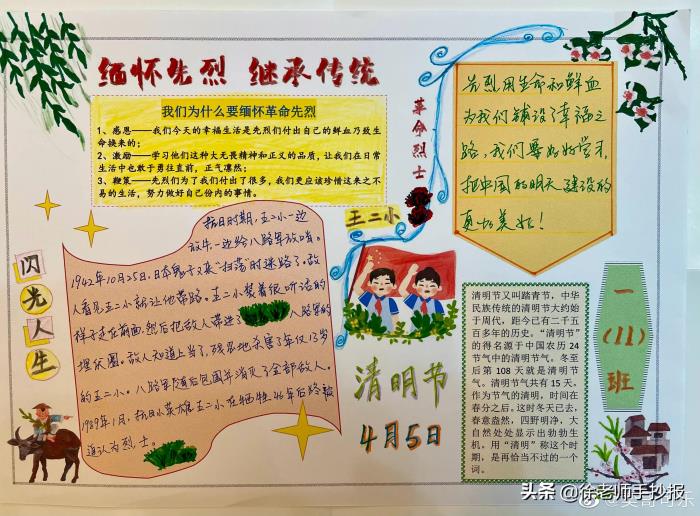 缅怀先烈 继承传统
我们为什么要缅怀革命先烈
1、感恩——我们今天的幸福生活是先烈们付出自己的鲜血乃致生
命换来的；
2、激励——学习他们这种大无畏精神和正义的品质，让我们在日常
生活中也敢于勇往直前，正气凛然；
3、鞭策——先烈们为了我们付出了很多，我们更应该珍惜这来之不
易的生活，努力做好自己份内的事情。
革命烈士
王二小
先烈用生命和鲜血
为我们铺设幸福之
路，我们要好好学习，
把中国的明天建设的
更加美好！
闪光人生
抗日时期，王二小一边
放牛一边给八路军放哨。
1942年10月25日，日本鬼子又来"扫荡"时迷路了。敌
人看见王二小就让他带路。王二小装着很听话的
样子走在前面，然后把敌人带进了 八路军的
埋伏圈。敌人知道上当了，残忍地杀害了年仅13岁
的王二小。八路军随后包围并消灭了全部敌人。
1989年1月，抗日小英雄王二小在牺牲46年后终被
追认为烈士。
清明节
4月5日
清明节又叫踏青节，中华
民族传统的清明节大约始
于周代，距今已有二千五
百多年的历史。"清明节"
的得名源于中国农历 24
节气中的清明节气。冬至
后第 108 天就是清明节
气。清明节气共有 15 天。
作为节气的清明，时间在
春分之后。这时冬天已去，
春意盎然，四野明净，大
自然处处显示出勃勃生
机。用"清明"称这个时
期，是再恰当不过的一个
词。
一(11)班
头条 @徐老师手抄报